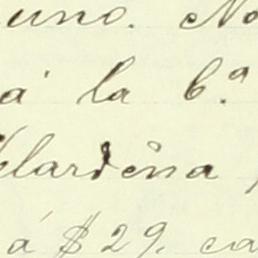 uno. No
á la 6.ª
Velardeña
á $ 29. ca